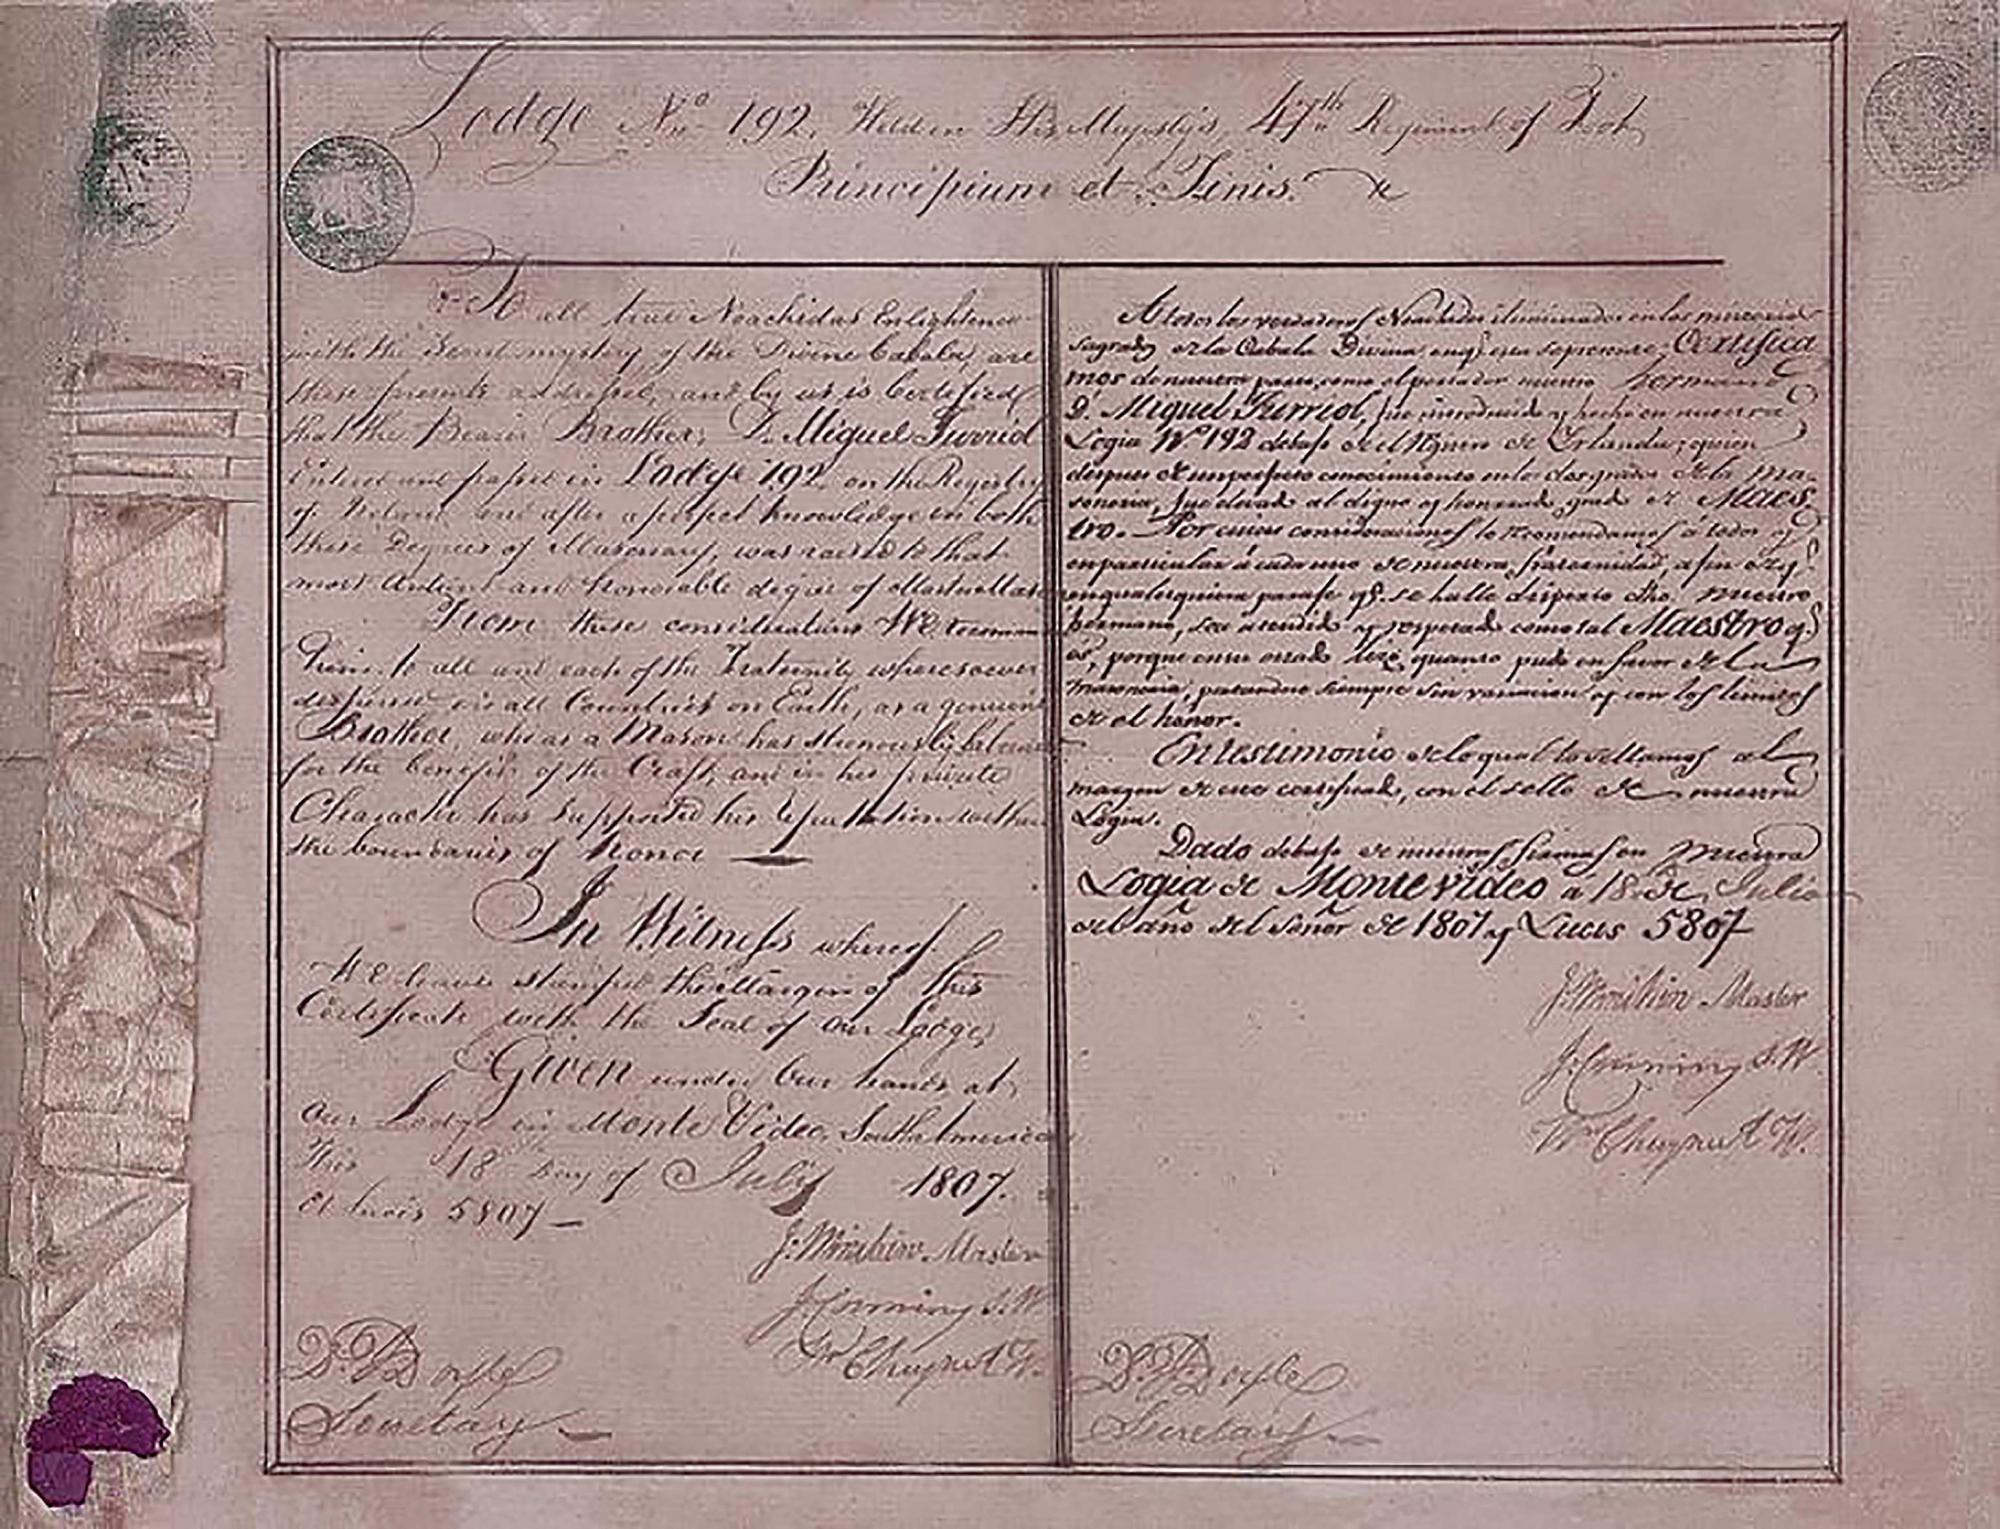 Lodge No. 192. Held in His Majesty's 47th Regiment of Foot
Principium et Finis. &
To all true Noachidas Enlightened
with the Secret mystery of the Divine Cabala, are
these presents addressed, and by us is Certified
that the Bearer Brother, Dn. Miguel Furriol
Entered and passed in Lodge 192, on the Registry
of Ireland and after a perfect knowledge in both
these Degrees of Masonry, was raised to that
most Antient and Honorable degree of Master Mason
From these considerations We recommend
him to all and each of the Fraternity wheresoever
dispersed in all Countries on Earth, as a genuine
Brother, who as a Mason has strenuously
for the benefit of the Craft, and in his private
Character has supported his reputation within
the boundaries of Honor
In Witness whereof
We have stamped the Margin of this
Certificate with the Seal of our Lodge,
Given under Our hands at
Our Lodge in Monte Video, South America
This 18th Day of July 1807.
et Lucis 5807
Master
J. Cumming S.W.
Wm
D. Doyle
Secretary
A todos los verdaderos iluminados en los misterios
sagrados de la Cabala Divina, Certifica
mos de nuestra parte, como el portador nuestro hermano
Dn. Miguel Furriol, fue introducido y hecho en nuestra
Logia No. 192 debajo de el de Irlanda; quien
despues de un perfecto conocimiento en los dos grados de la Ma-
soneria, fue elevado al digno y honrado grado de Maes
tro. Por cuias consideraciones lo recomendamos á todos y
en particular á cada uno de nuestra fraternidad, a fin de q.
en qualesquiera paraje qe. se halle disperso dho. nuestro
hermano, sea atendido y respetado como tal Maestro q.
es, porque en su hizo quanto pudo en favor de la
masoneria, portandose siempre sin variacion y con los limites
de el honor.
En testimonio de lo qual lo sellamos al
margen de este certificado, con el sello de nuestra
Logia.
Dado debajo de nuestras firmas en nuestra
Logia de Monte video a 18 de Julio
del año del Señor de 1807 y Lucis 5807
Master
J. Cumming S.W.
Wm
D. Doyle
Secretary